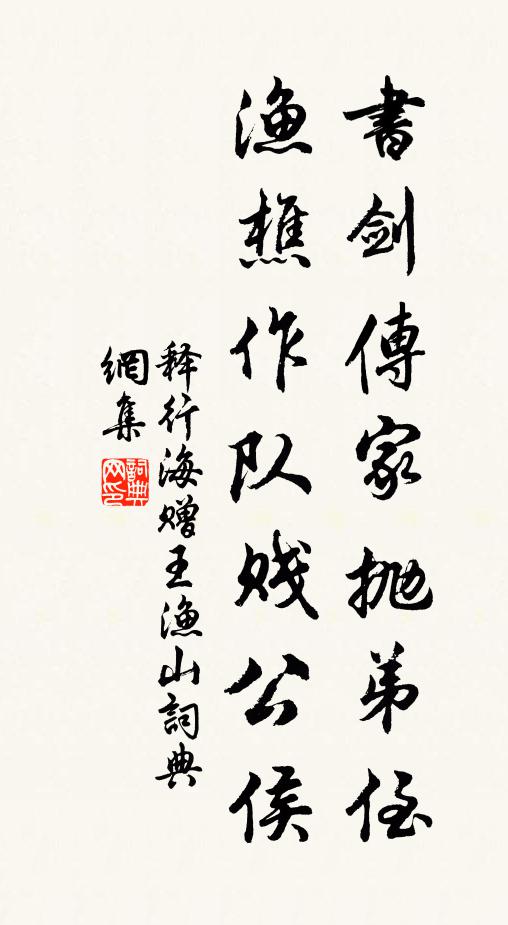 書劍傳家抛弟侄
漁樵作队賤公侯
释行海贈王漁山詞典
網集
詞典
网印